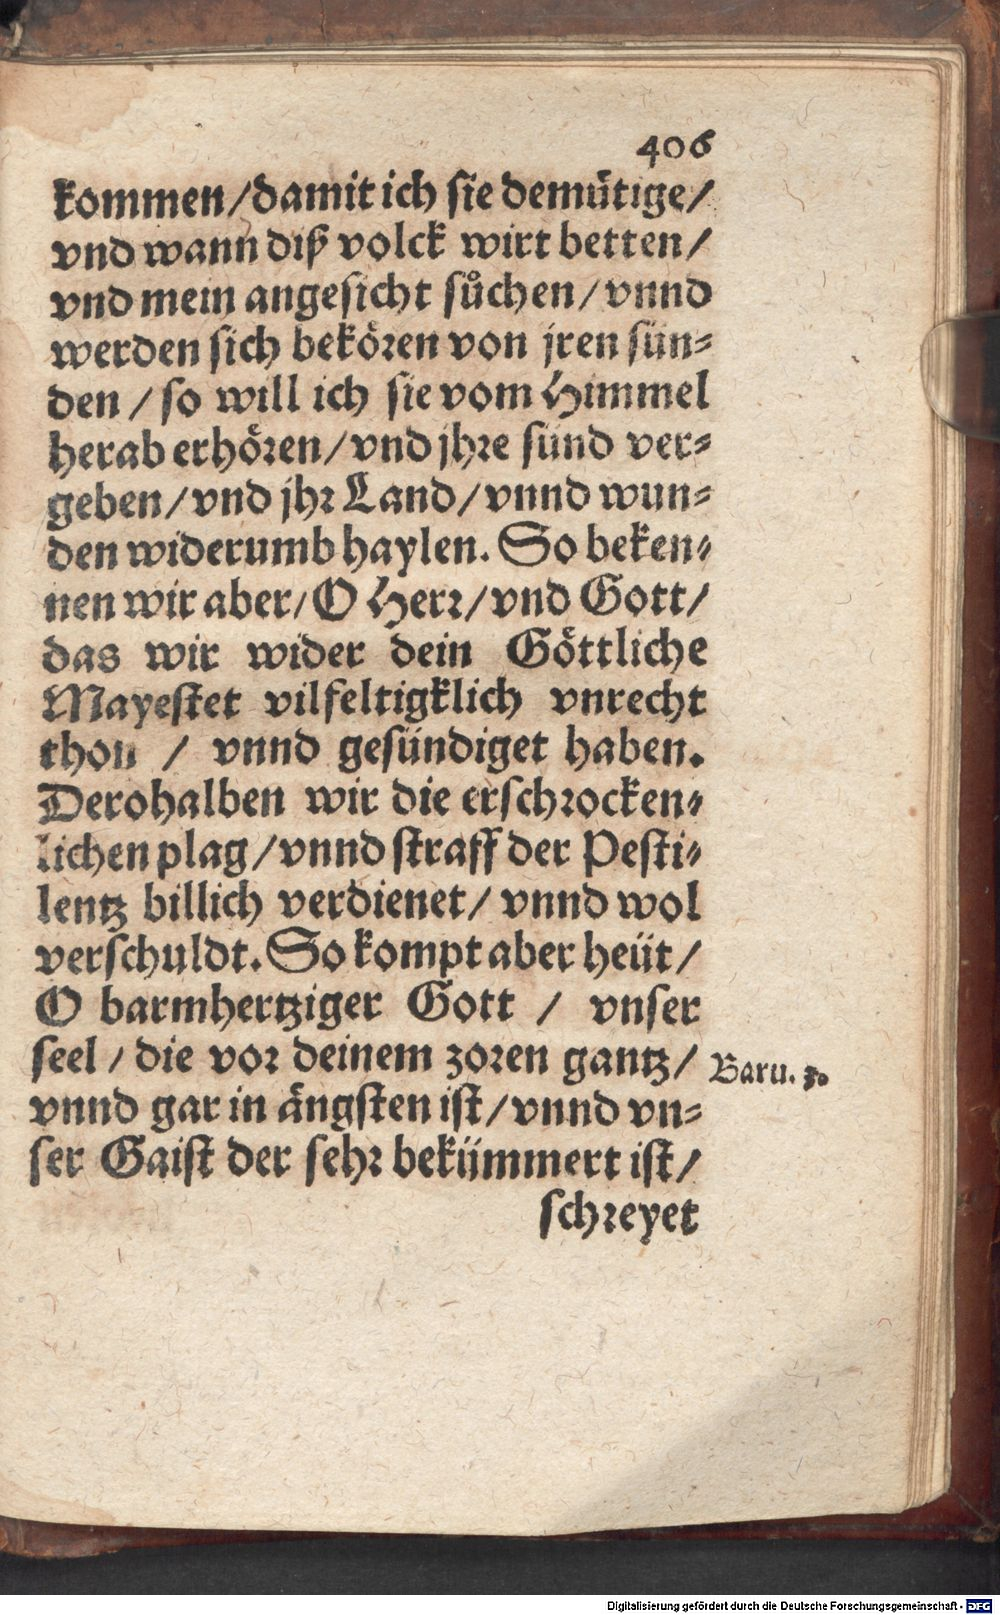 406
kommen/damit ich sie demütige/
vnd wann diß volck wirt betten/
vnd mein angesicht sůchen/vnnd
werden sich bekören von jren sün⸗
den/so will ich sie vom Himmel
herab erhören/vnd jhre sünd ver⸗
geben/vnd jhr Land/vnnd wun⸗
den widerumb haylen. So beken⸗
nen wir aber/O Herr/vnd Gott/
das wir wider dein Göttliche
Mayestet vilfeltigklich vnrecht
thon / vnnd gesündiget haben.
Derohalben wir die erschrocken⸗
lichen plag/vnnd straff der Pesti⸗
lentz billich verdienet/vnnd wol
verschuldt. So kompt aber heüt/
O barmhertziger Gott / vnser
seel/die vor deinem zoren gantz/
Baru. 3.
vnnd gar in ängsten ist/vnnd vn⸗
ser Gaist der sehr bekümmert ist/
schreyet
Digitalisierung gefördert durch die Deutsche Forschungsgemeinschaft - DFG